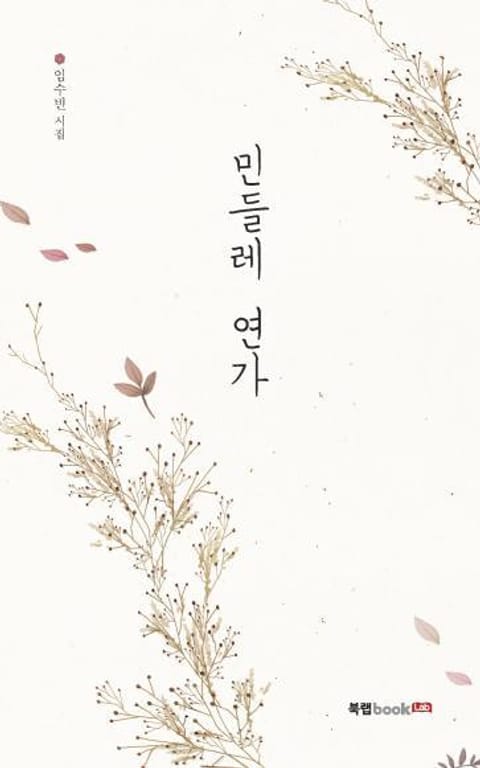 임수빈 시집
민들레 연가
북랩book Lab